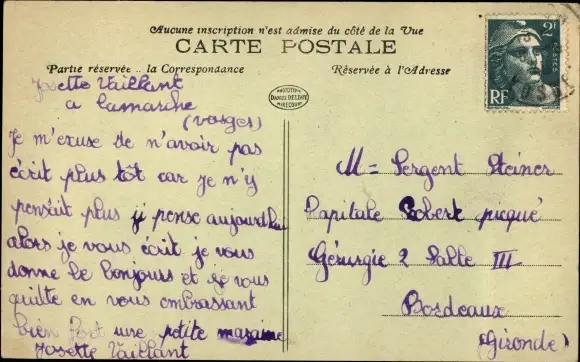 Aucune inscription n'est admise du côté de la Vue
CARTE POSTALE
Partie réservée .. la Correspondance
Réservée à l'Adresse
Josette Vaillant
a Lamarche
(Vosges)
Je m'exuse de n'avoir pas
écrit plus tôt car je n'y
pensait plus j'y pense aujourdhui
alors je vous écrit je vous
donne le bonjours et je vous
quitte en vous embrassant
bien fort une petite maraine
Josette Vaillant
PHOTOTYPIE
DANIEL DELBOY
MIRECOURT
2F
POSTES
RF
M = Sergent Steiner
Hapitale Robert piqué
Gérurgie 2 Salle III
Bordeaux
(Gironde)